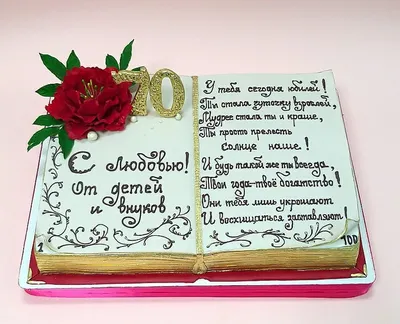 70
С любовью!
От детей
и внуков
1
У тебя сегодня юбилей!
Ты стала чуточку взрослей,
Мудрее стала ты и краше,
Ты просто прелесть
солнце наше!
И будь такой же ты всегда,
Твои года-твоё богатство!
Они тебя лишь украшают
И восхищаться заставляют!
100